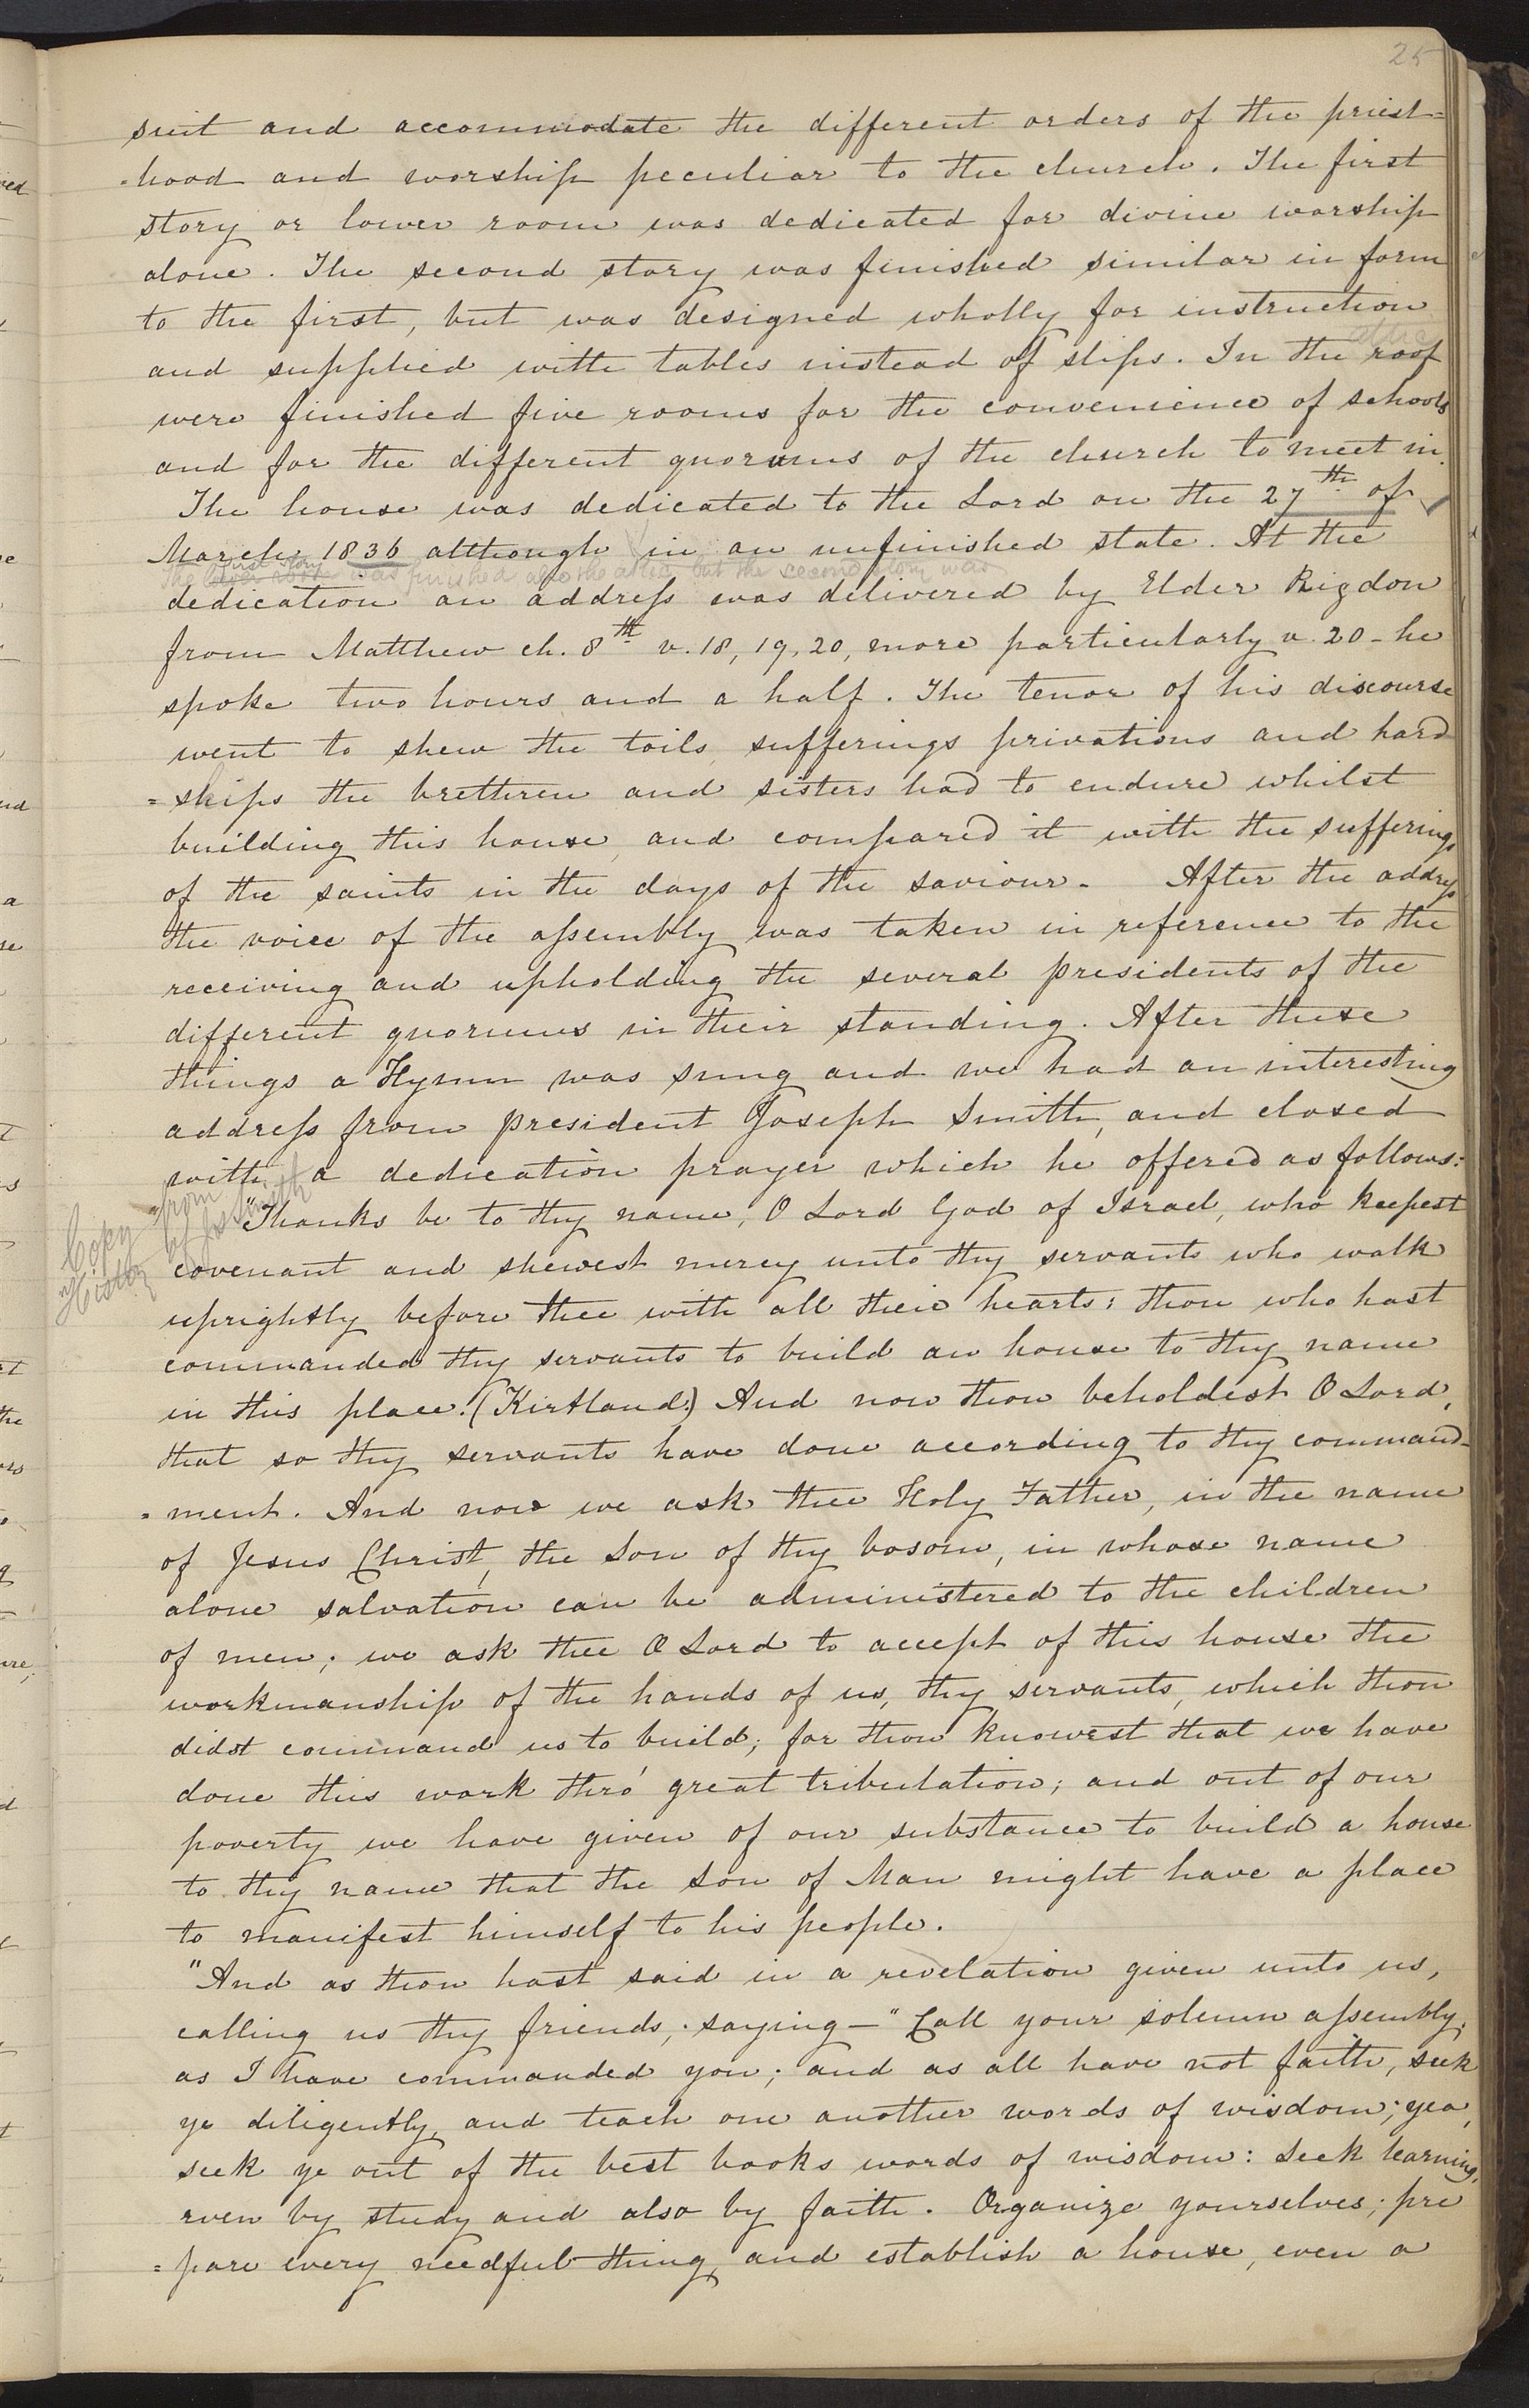 25
suit and accommodate the different orders of the priest=
=hood and worship peculiar to the church. The first
story or lower room was dedicated for divine worship
alone. The second story was finished similar in form
to the first, but was designed wholly for instruction
attic
and supplied with tables instead of slips. In the roof
were finished five rooms for the convenience of schools
and for the different quorums of the church to meet in.
The house was dedicated to the Lord on the 27th of
March 1836 although in an unfinished state. At the
first story
The lower room was finished also the attic, but the second story was
dedication an address was delivered by Elder Rigdon
from Matthew ch. 8th v. 18, 19, 20, more particularly v. 20 - he
spoke two hours and a half. The tenor of his discourse
went to shew the toils, sufferings privations and hard
=ships the brethren and sisters had to endure whilst
building this house, and compared it with the sufferings
of the saints in the days of the saviour. After the address
the voice of the assembly was taken in reference to the
receiving and upholding the several presidents of the
different quorums in their standing. After these
things a Hymn was sung and we had an interesting
address from president Joseph Smith, and closed
with a dedication prayer which he offered as follows:
Copy from
History of Jos Smith
"Thanks be to thy name, O Lord God of Israel, who keepest
covenant and shewest mercy unto thy servants who walk
uprightly before thee with all their hearts; thou who hast
commanded thy servants to build an house to thy name
in this place. (Kirtland.) And now thou beholdest O Lord,
that so thy servants have done according to thy command-
=ment. And now we ask thee Holy Father, in the name
of Jesus Christ, the Son of thy bosom, in whose name
alone salvation can be administered to the children
of men; we ask thee O Lord to accept of this house the
workmanship of the hands of us, thy servants, which thou
didst command us to build; for thou knowest that we have
done this work thro' great tribulation; and out of our
poverty we have given of our substance to build a house
to thy name that the Son of Man might have a place
to manifest himself to his people.
"And as thou hast said in a revelation given unto us,
calling us thy friends, saying — "Call your solemn assembly,
as I have commanded you; and as all have not faith, seek
ye diligently, and teach one another words of wisdom; yea,
seek ye out of the best books words of wisdom: Seek learning,
even by study and also by faith. Organize yourselves; pre
=pare every needful thing, and establish a house, even a